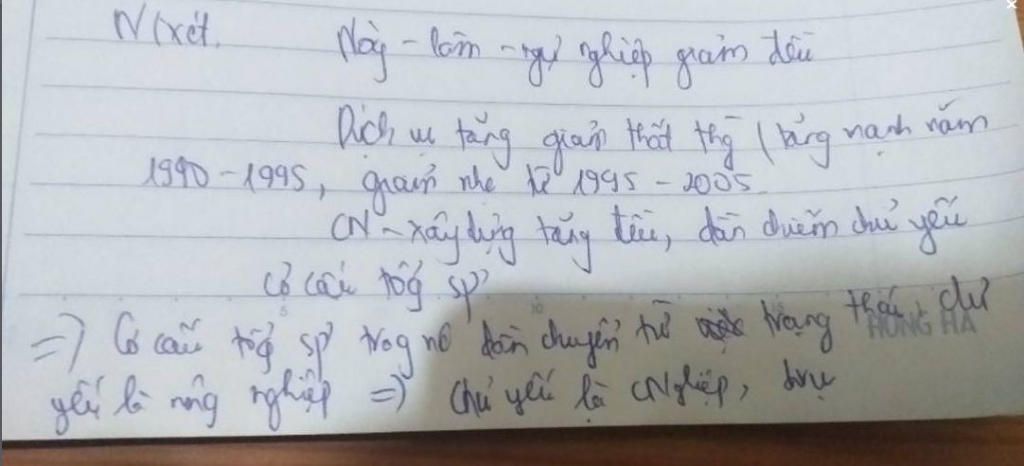 N/xét. Nôg - lâm - ngư nghiệp giảm đều
Dịch vụ tăng giảm thất thg (tăng mạnh năm
1990 - 1995, giảm nhẹ từ 1995 - 2005
CN - xây dựng tăng đều, dần chiếm chủ yếu
cơ cấu tổg sp
=> Cơ cấu tổg sp trog nc dần chuyển từ trạng thái chủ
HONG HA
yếu là nông nghiệp => chủ yếu là CNghiệp, dvụ